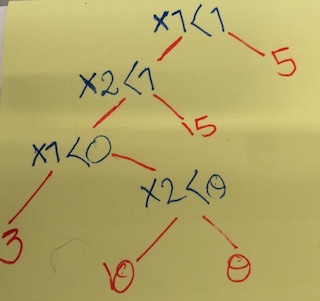 x1<1
5
x2<1
15
x1<0
x2<0
3
10
0